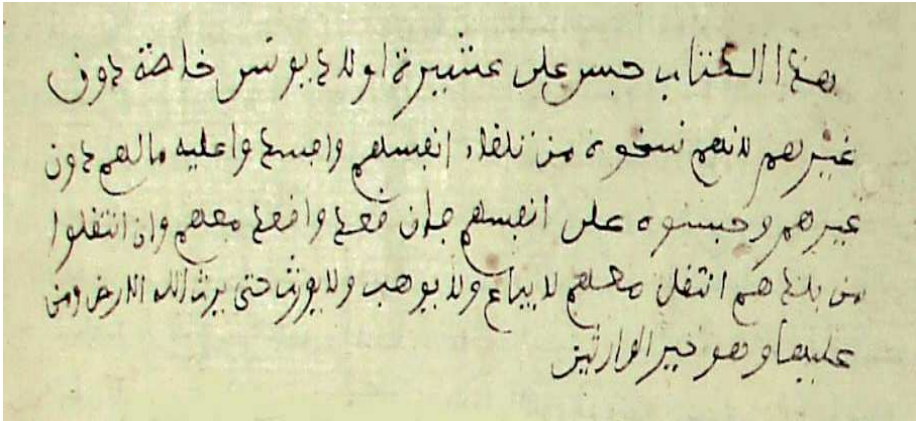 هذا الكتاب حبس على عشيرة اولاد يونس خاصة دون
غيرهم لانهم نسخوه من تلقاء انفسهم وافسدوا عليه مالهم دون
غيرهم وحبسوه على انفسهم فإن قعدوا قعد معهم وان انتقلوا
من بلدهم انتقل معهم لا يباع ولا يوهب ولا يورث حتى يرث الله الارض ومن
عليها وهو خير الوارثين